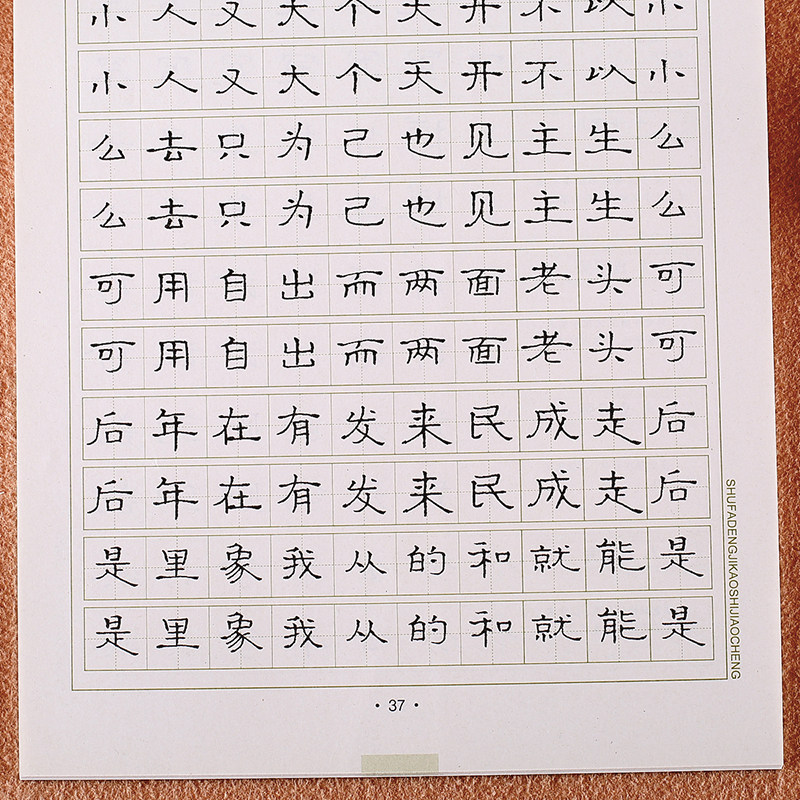 小人又大个天开不以小
小人又大个天开不以小
么去只为己也见主生么
么去只为己也见主生么
可用自出而两面老头可
可用自出而两面老头可
后年在有发来民成走后
后年在有发来民成走后
是里象我从的和就能是
是里象我从的和就能是
SHUFADENGJIKAOSHIJIAOCHENG
· 37 ·